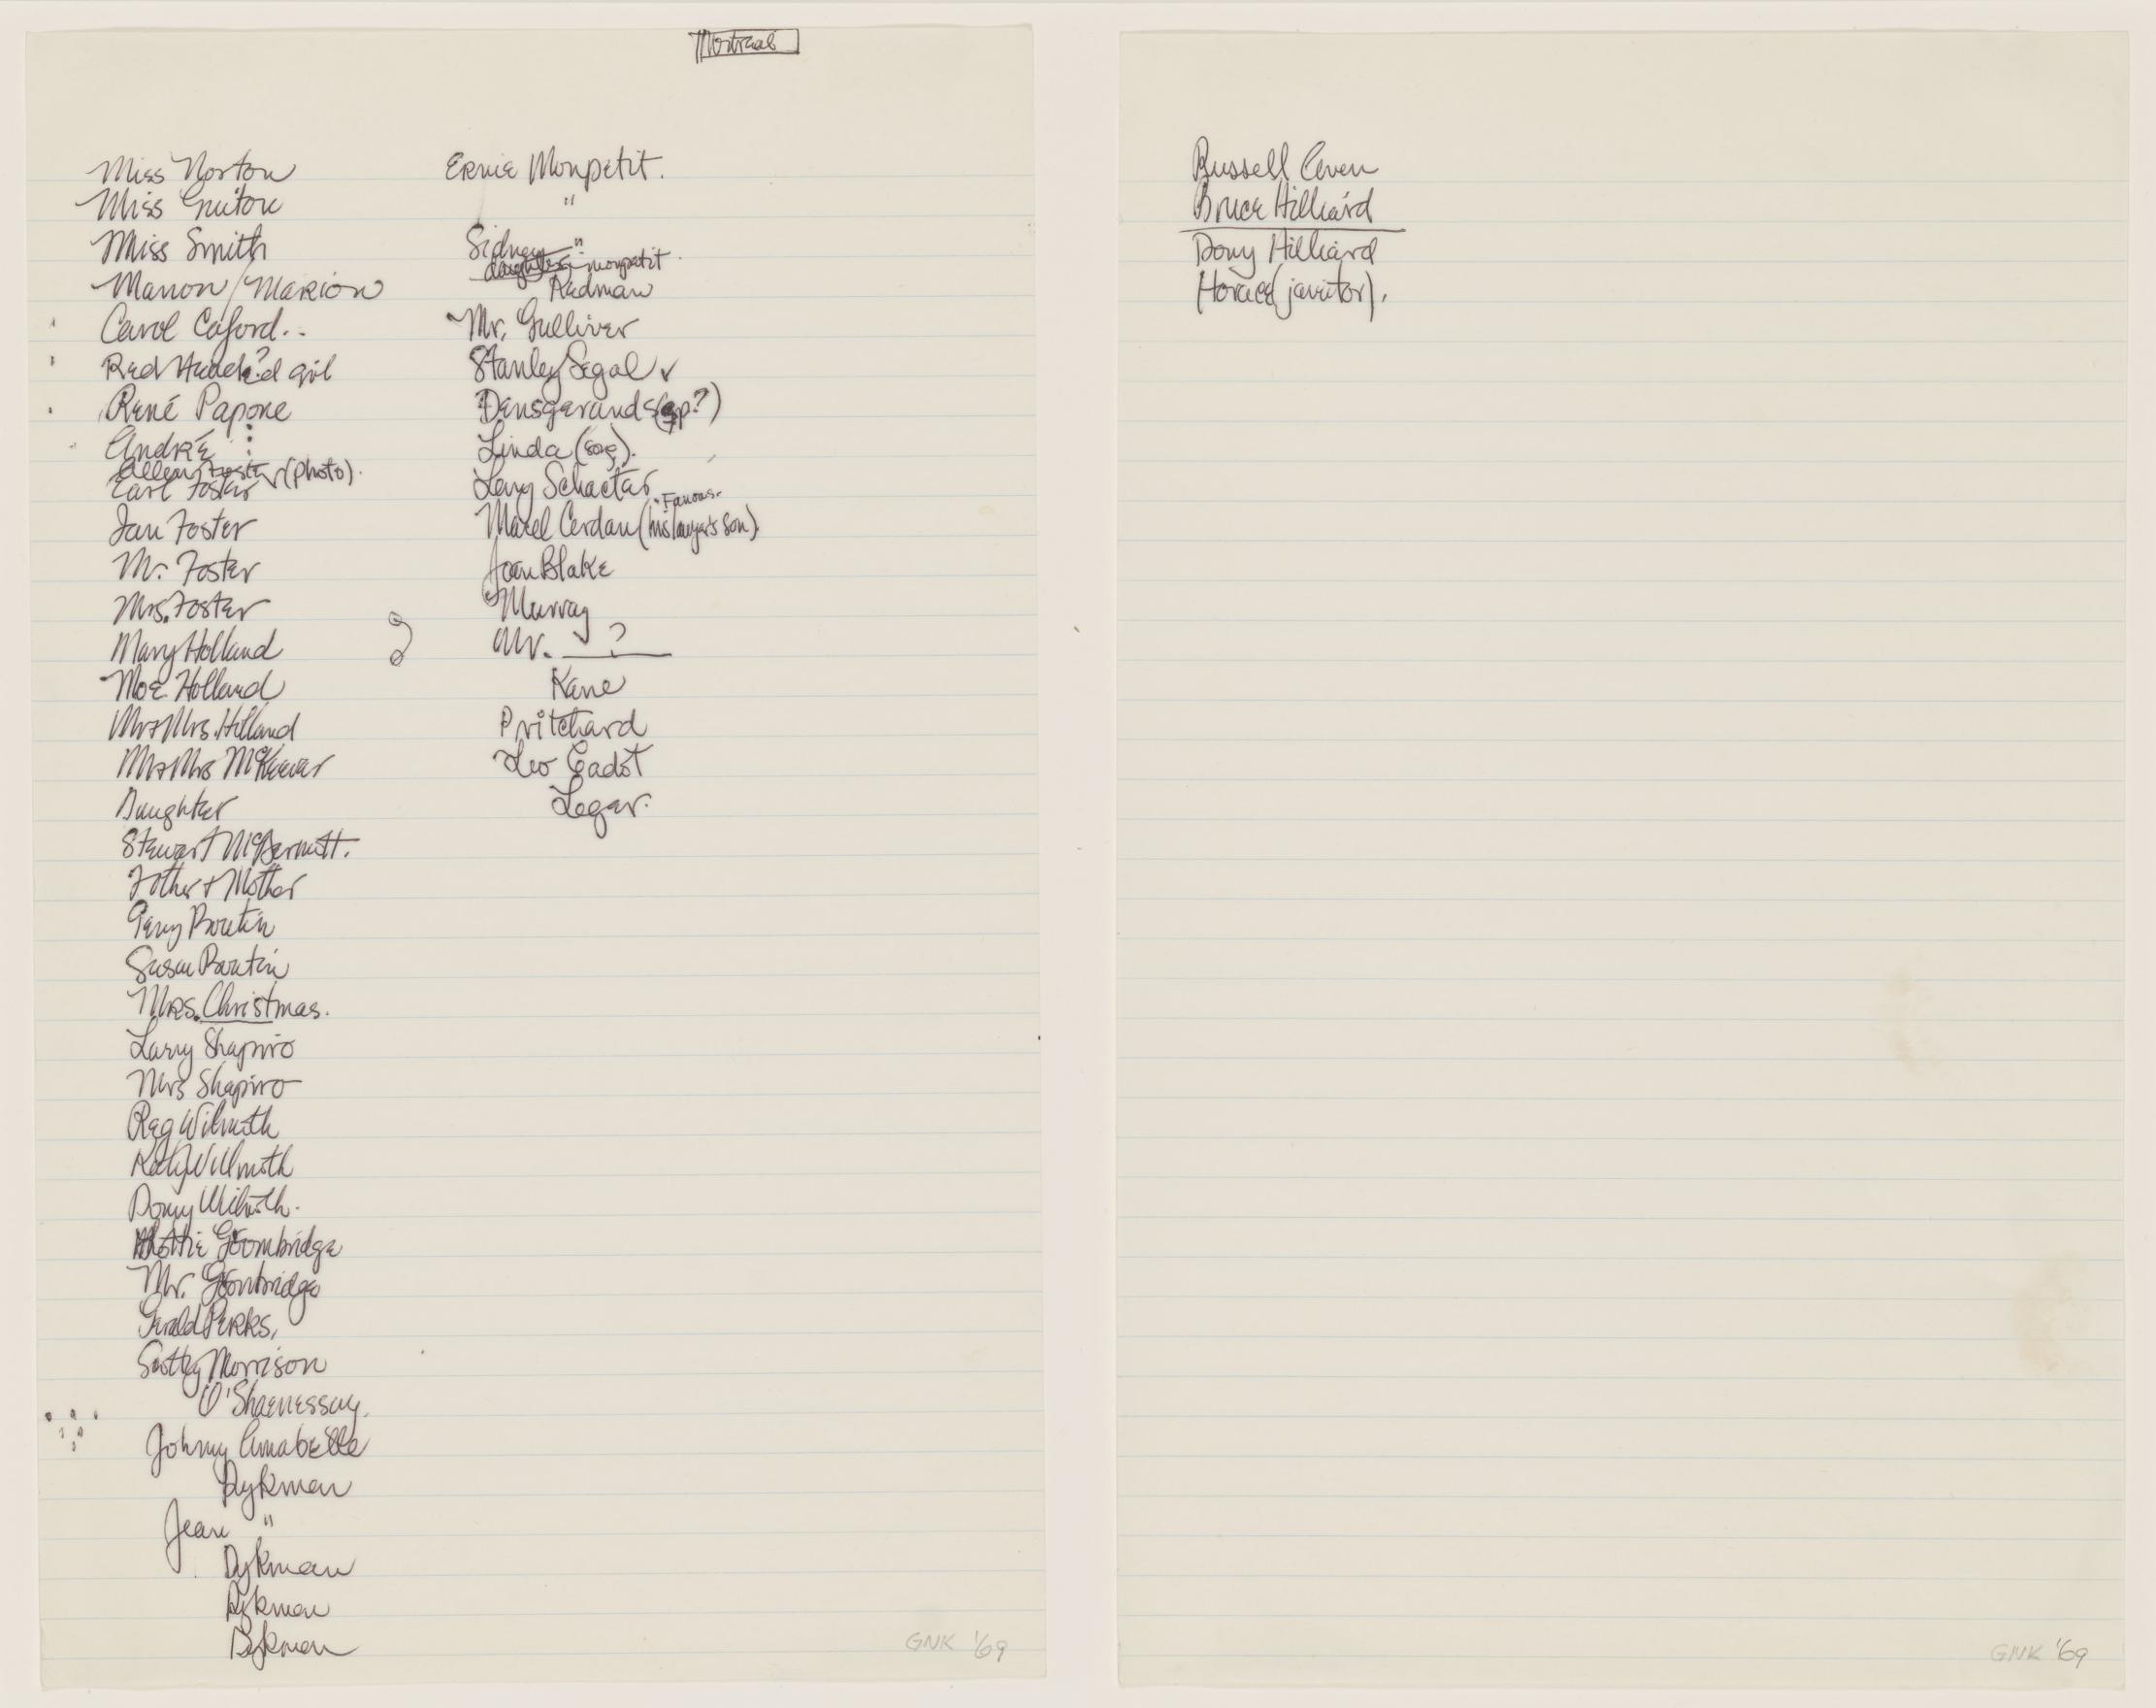 Montreal
Miss Norton
Miss
Miss Smith
Manon/Marion
Carol Caford..
Red Headed girl
René Papone
André
Allen Foster (photo).
Earl Foster
Jan Foster
Mr. Foster
Mrs. Foster
Mary Holland
Moe Holland
Mr + Mrs. Holland
Mr + Mrs McKeever
Daughter
Stewart McDermott.
Father + Mother
Gerry Boutin
Susan Boutin
Mrs. Christmas.
Larry Shapiro
Mrs Shapiro
Reg Wilmoth
Willmoth
Donny Wilmoth.
Groombridge
Mr. Groombridge
Gerald Perks,
Scotty Morrison
O'Shaenessay.
Johnny Annabelle
Dykman
Jean "
Dykman
Dykman
Dykman
Ernie Monpetit.
"
Sidney "
daughter - monpetit.
Redman
Mr. Gulliver
Stanley Segal ✓
Densgerands (sp?)
Linda (song).
Larry Schacter
Famous.
Marcel Cerdan (his lawyer's son)
Joan Blake
Murray
Mr. __?__
Kane
Pritchard
Leo Cadot
Legar.
GNK '69
Russell Coven
Bruce Hilliard
Dony Hilliard
Horace (janitor).
GNK '69